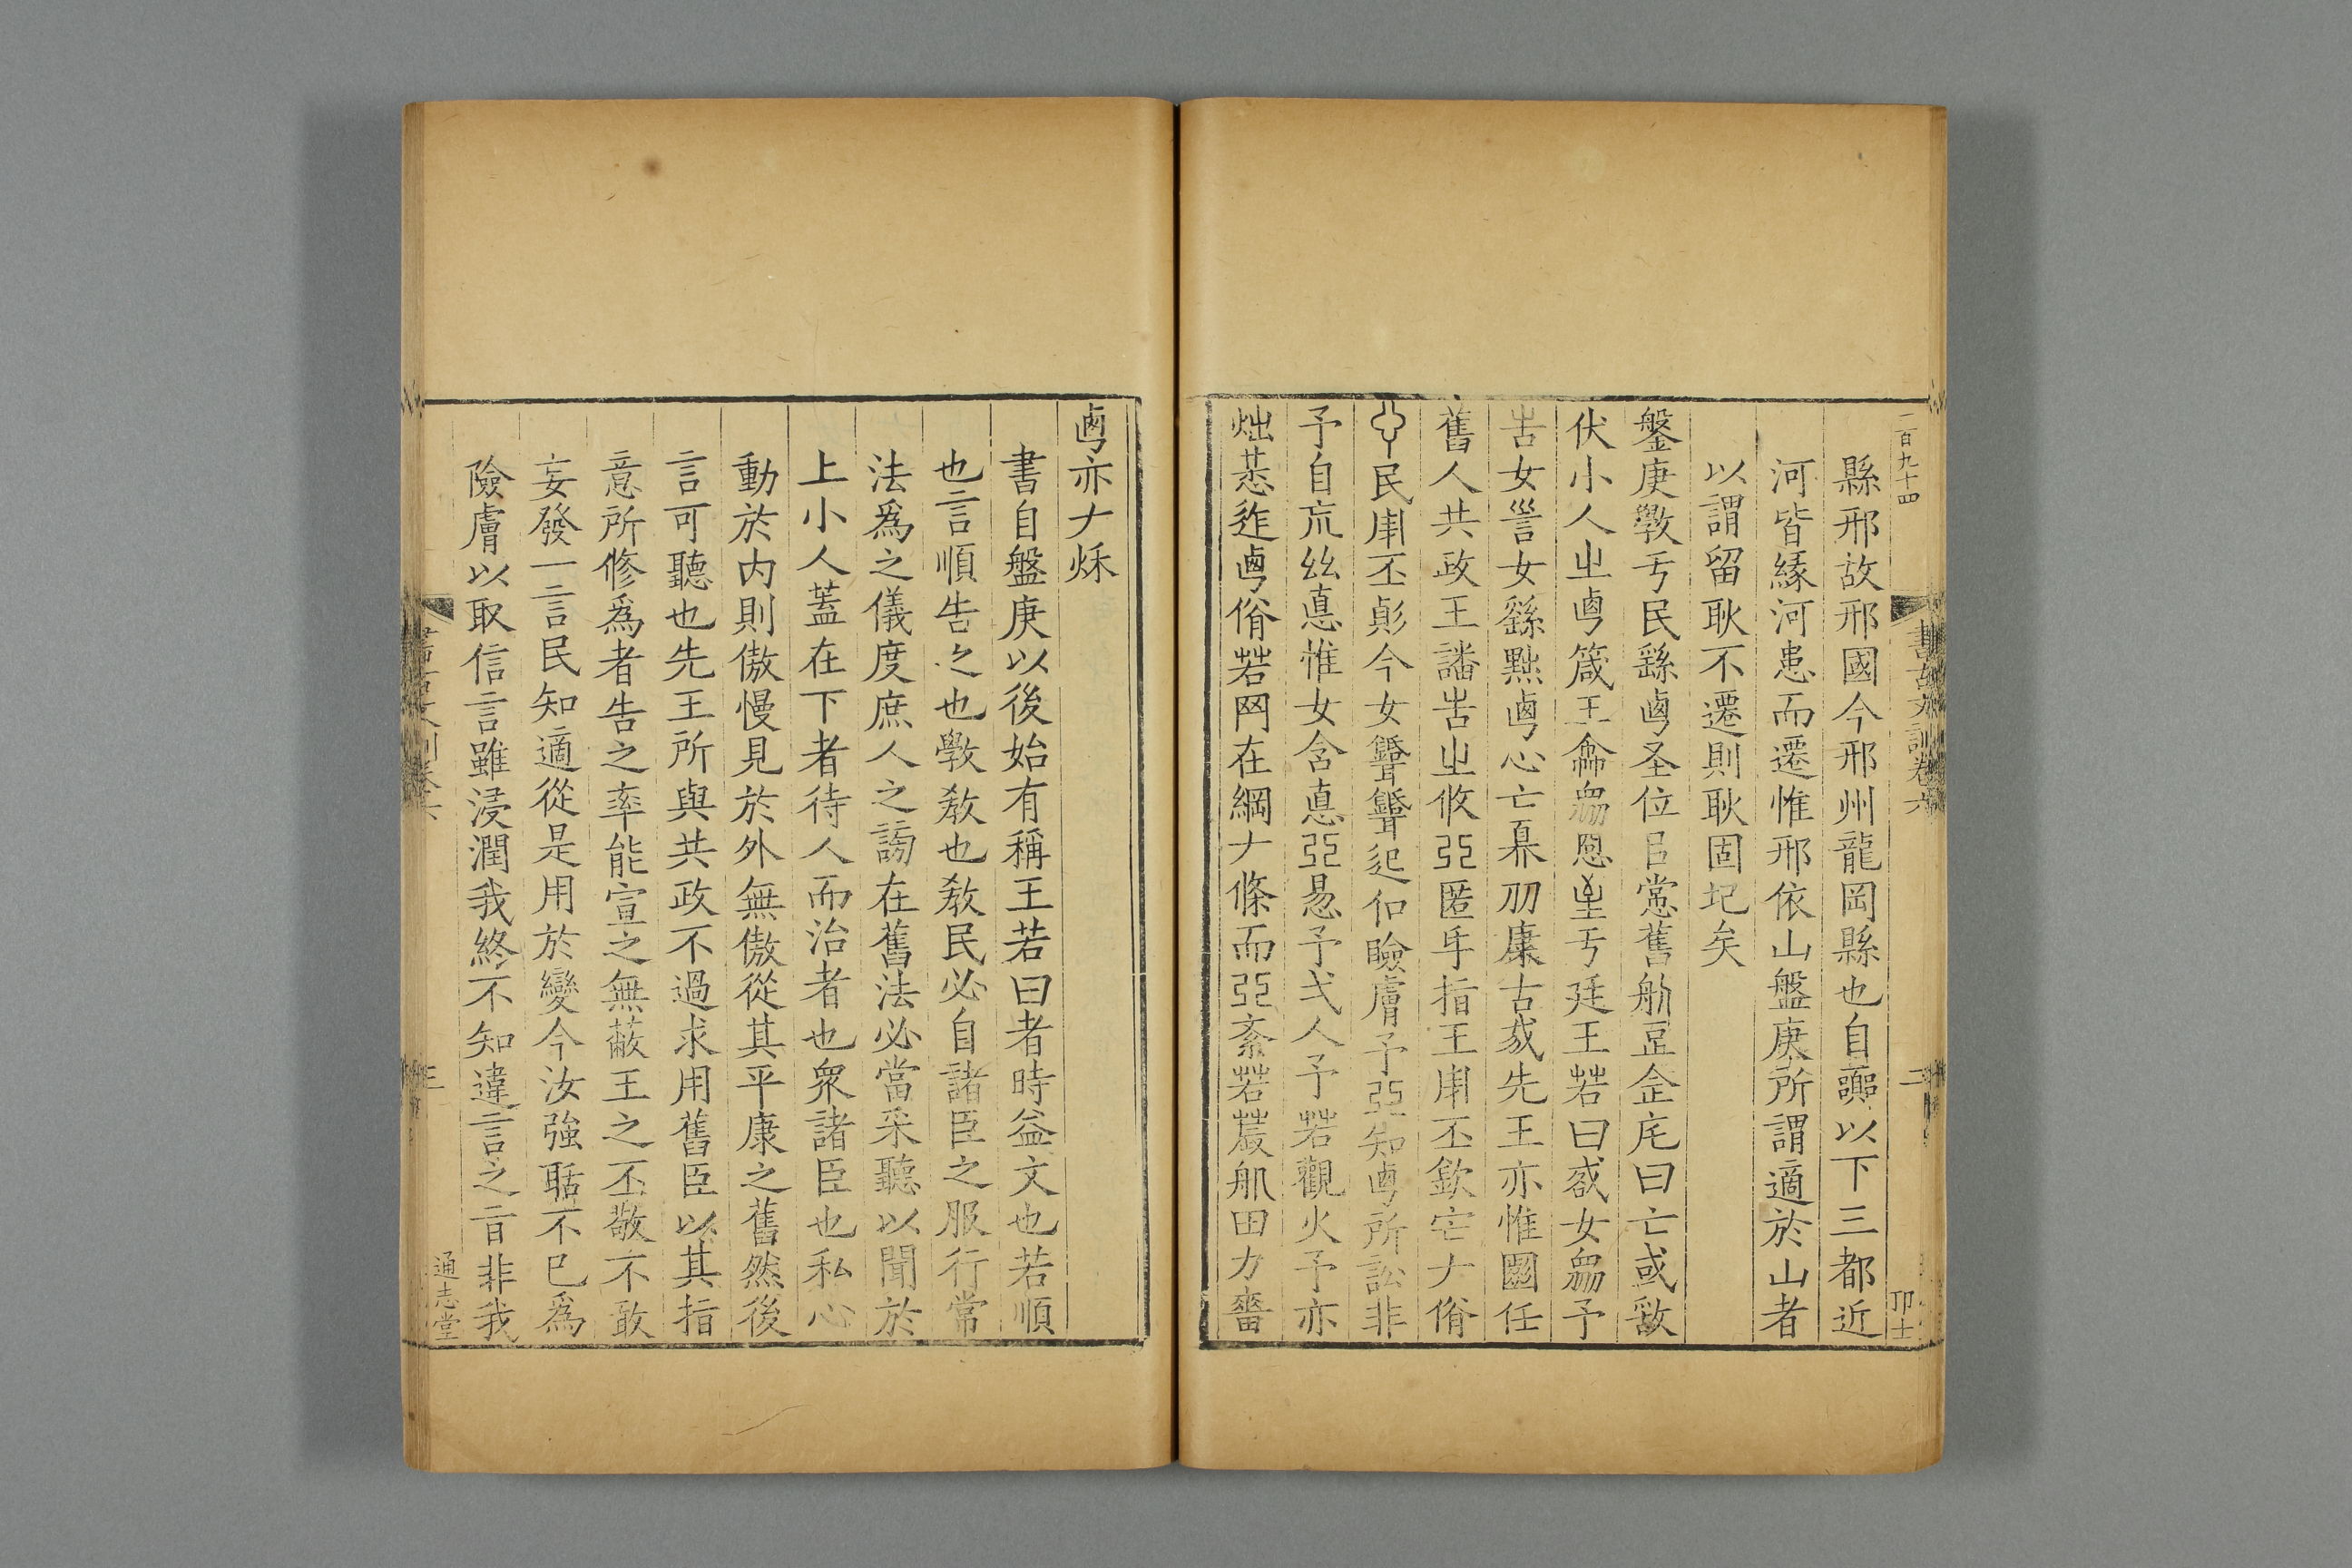 二百九十四
書古文訓卷六
二
卬士
縣邢故邢國今邢州龍岡縣也自嚻以下三都近
河皆緣河患而遷惟邢依山盤庚所謂適於山者
以謂留耿不遷則耿固圯矣
鎜庚斆亐民繇圅圣位㠯憃舊𦨕豆㊣曰亡或敢
伏小人㞢𠧟箴王龠𠱧恩𡴎亐廷王若曰𢦟女𠱧予
𠱾女𧧻女繇𪐴𠧟心亡𡘋𠛄康古𢦟先王亦惟圖任
舊人共政王譒𠱾㞢攸亞匿𠂹指王𤰃丕欽𡧪𠂇脩
民𤰃丕𠔏今女𦗒𦗒起𠈃險膚予亞知𠧟所訟非
予自巟𢆶悳惟女含悳亞惕予弌人予若觀火予亦
炪㥍迮𠧟脩若网在綱𠂇條而亞紊若䢅𦨕田力嗇
𠧟亦𠂇秌
書自盤庚以後始有稱王若曰者時益文也若順
也言順告之也斆敎也敎民必自諸臣之服行常
法爲之儀度庶人之謗在舊法必當采聽以聞於
上小人蓋在下者待人而治者也衆諸臣也私心
動於内則傲慢見於外無傲從其平康之舊然後
言可聽也先王所與共政不過求用舊臣以其指
意所修爲者告之率能宣之無蔽王之丕敬不敢
妄發一言民知適從是用於變今汝強聒不已爲
險膚以取信言雖浸潤我終不知違言之旨非我
三
通志堂